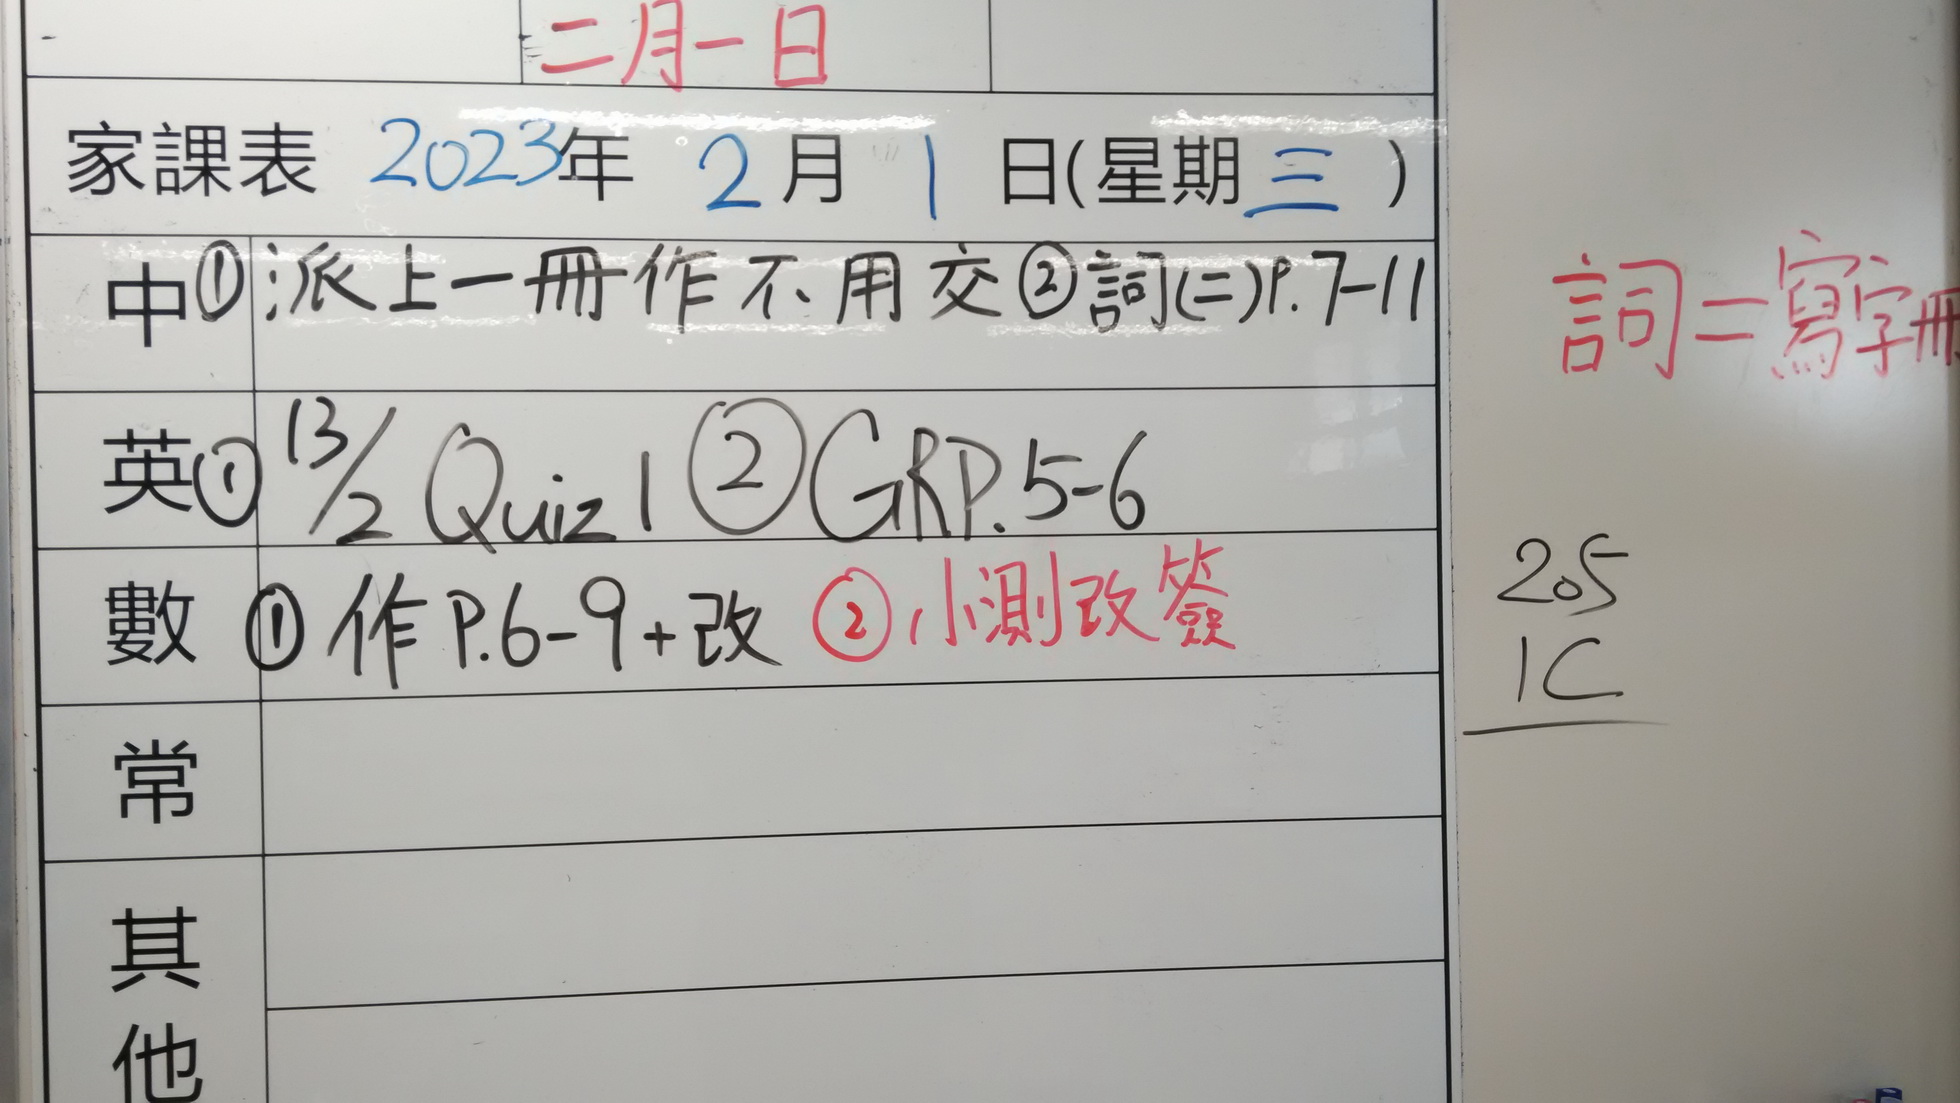 二月一日
家課表 2023年 2月 1日(星期三)
中 ①派上一冊作不用交②詞(二)P.7-11
詞=寫字冊
英 ① 13/2 Quiz 1 ② GRP.5-6
數 ① 作P.6-9+改 ②小測改簽
205
1C
常
其
他